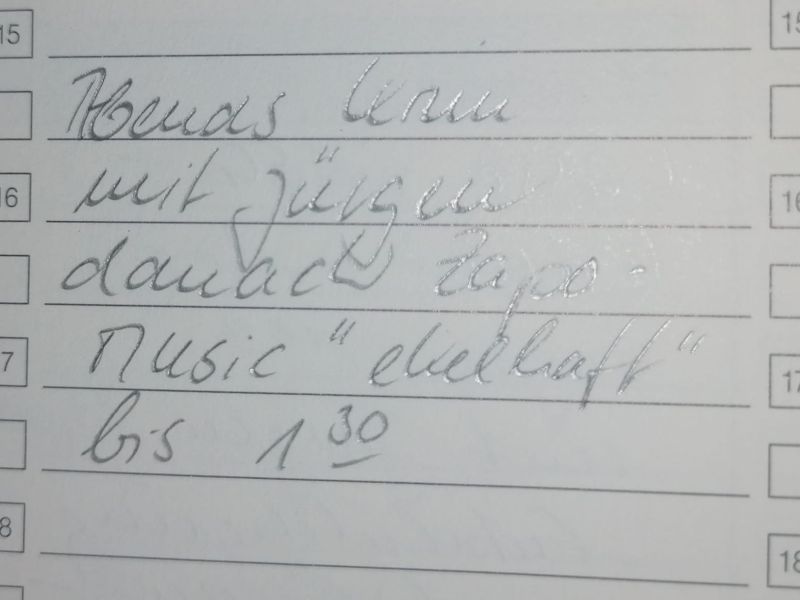 15 15
Abends lernen
mit Jürgen
16 16
danach Zapa-
Music "ekelhaft"
7 17
bis 1 30
8 18